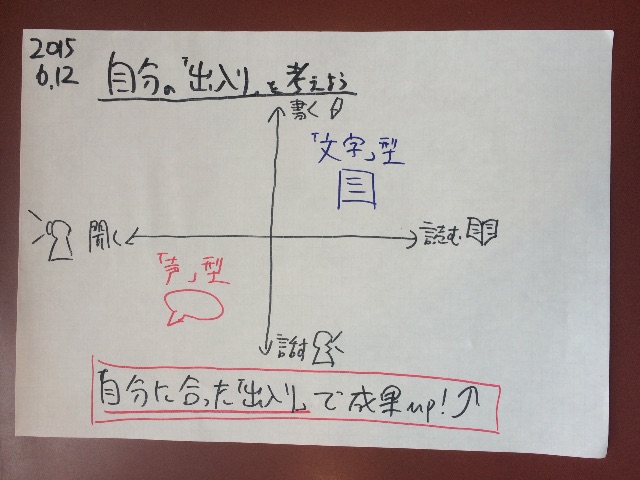 2015
6.12
自分の「出入り」を考えよう
書く
「文字」型
聞く
読む
「声」型
話す
自分に合った「出入り」で成果up!